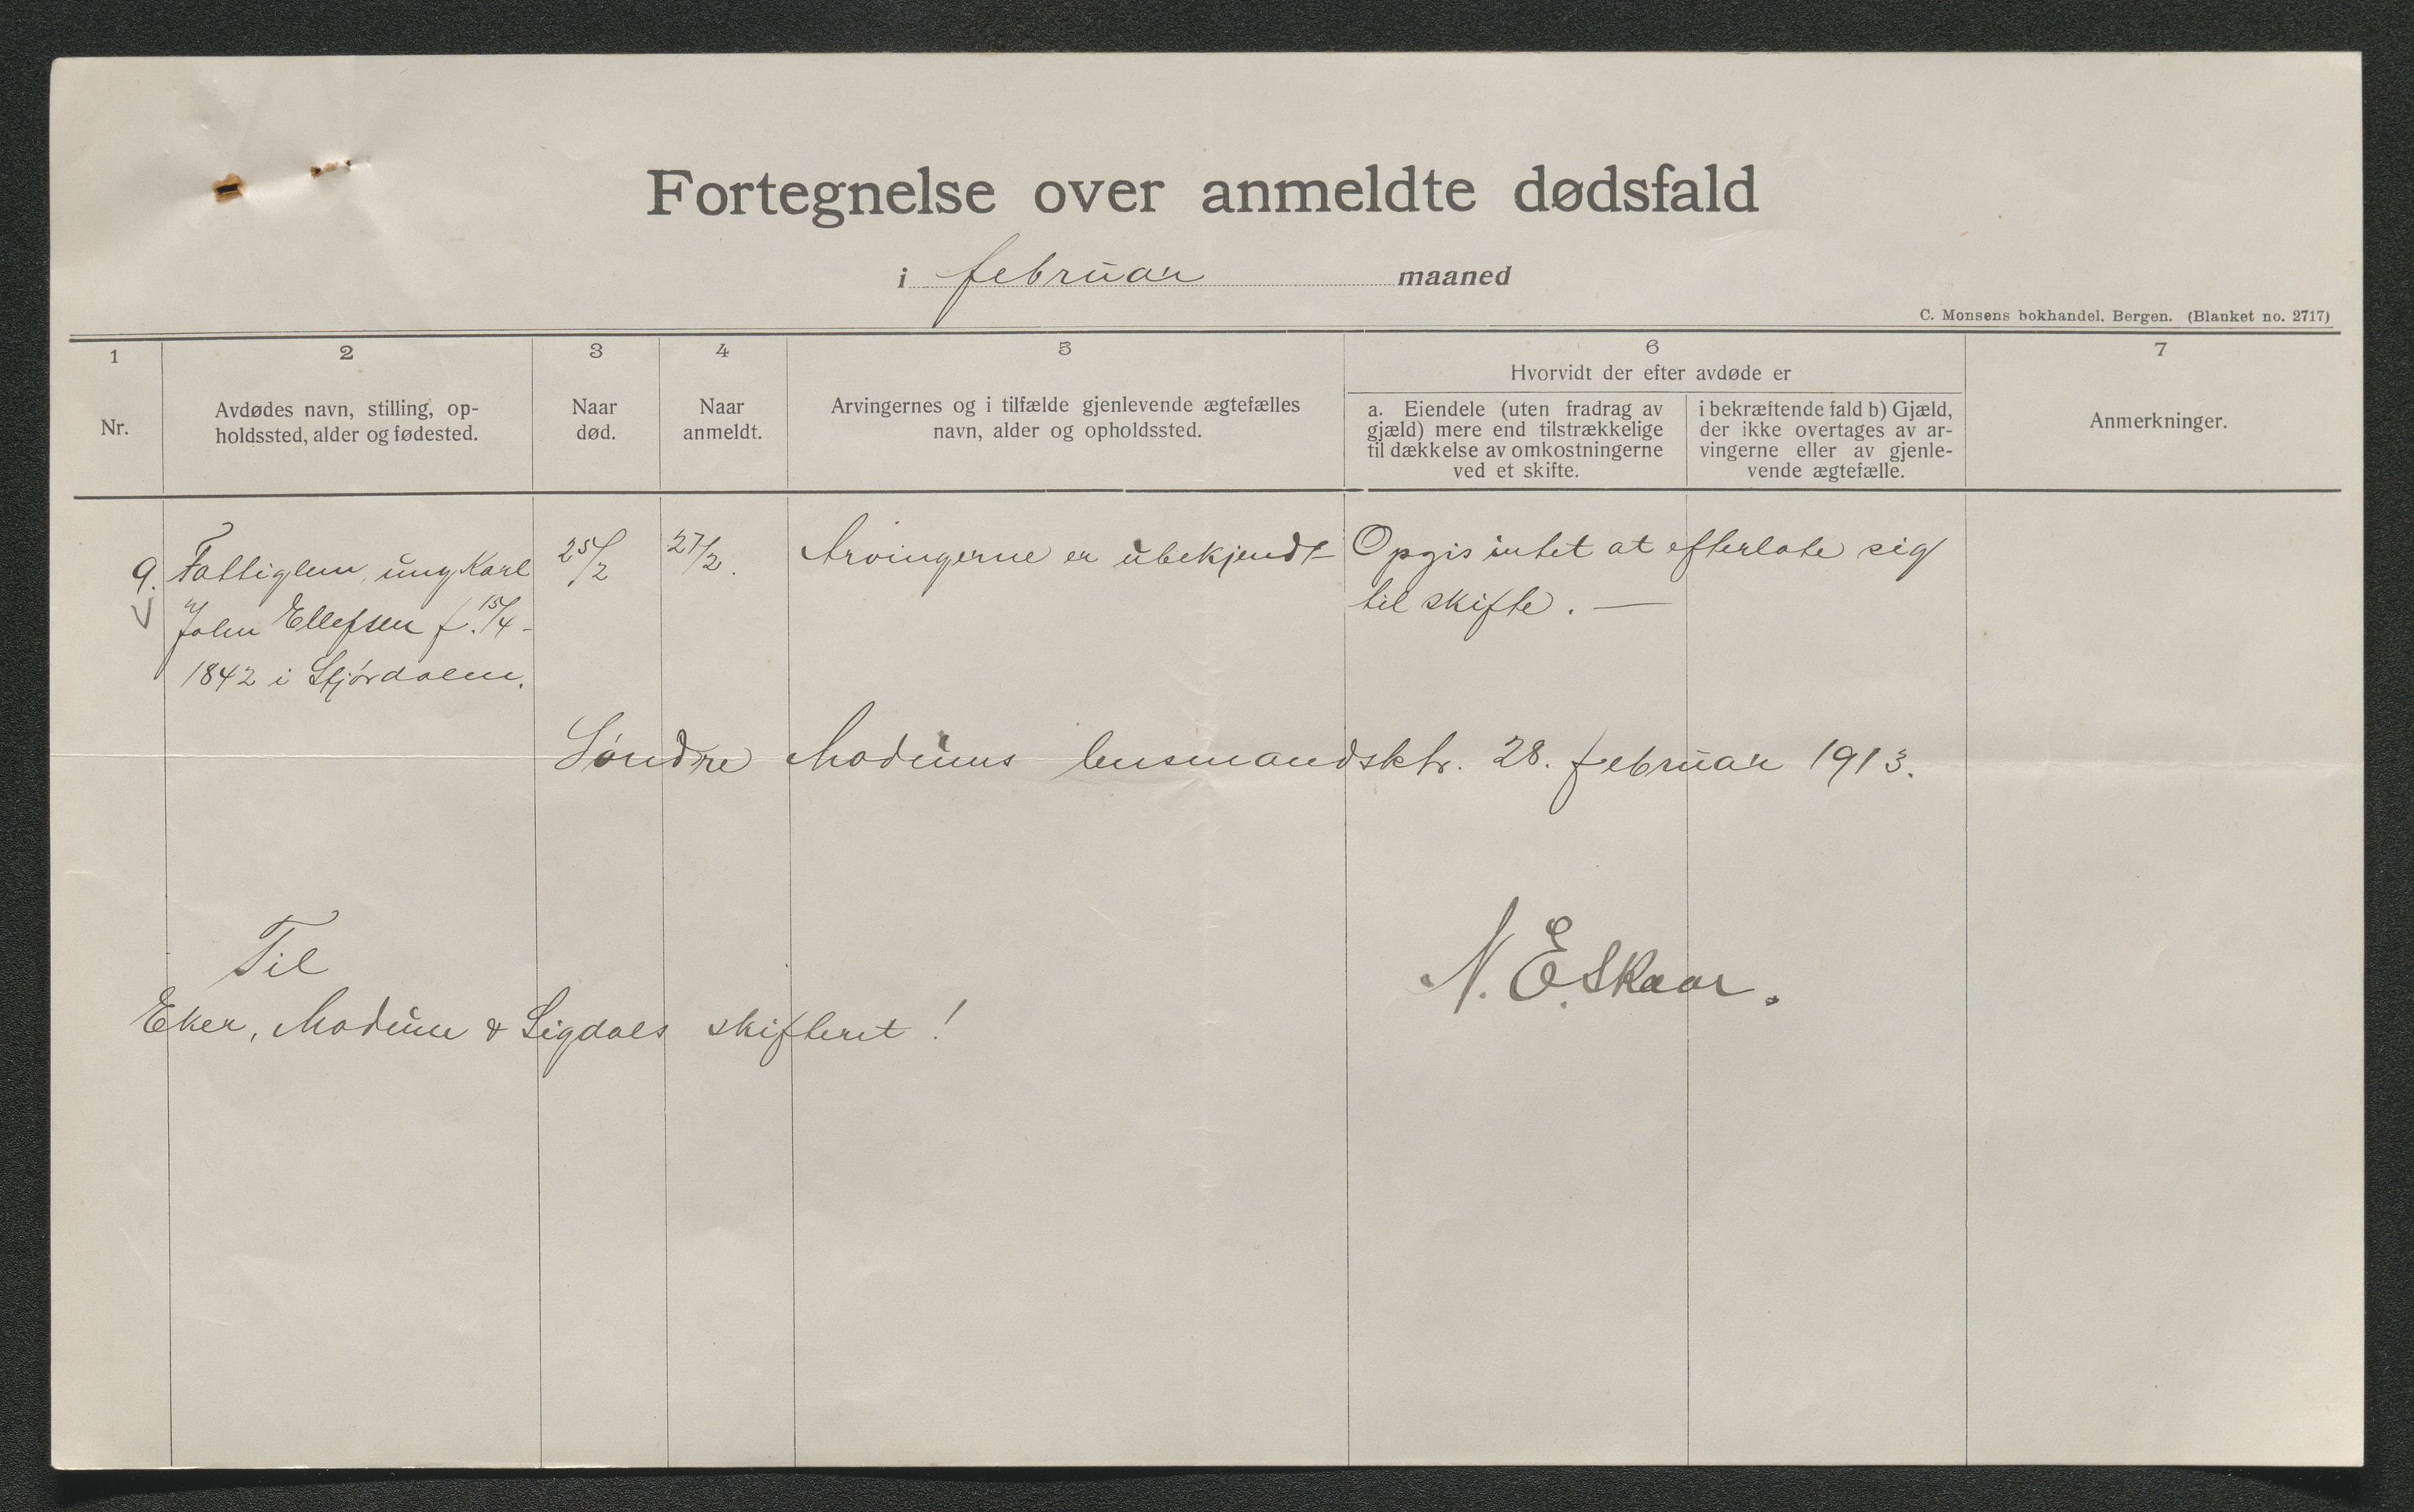 Fortegnelse over anmeldte dødsfald
i februar maaned
C. Monsens bokhandel, Bergen. (Blanket no. 2717)
1 2 3 4 5 6 7
Hvorvidt der efter avdøde er
Nr.
Avdødes navn, stilling, op-
holdssted, alder og fødested.
Naar
død.
Naar
anmeldt.
Arvingernes og i tilfælde gjenlevende ægtefælles
navn, alder og opholdssted.
a. Eiendele (uten fradrag av
gjæld) mere end tilstrækkelige
til dækkelse av omkostningerne
ved et skifte.
i bekræftende fald b) Gjæld,
der ikke overtages av ar-
vingerne eller av gjenle-
vende ægtefælle.
Anmerkninger.
9.
Fattiglem, ungkarl
John Ellefsen f. 15/4 -
1842 i Stjørdalen.
25/2
27/2.
Arvingerne er ubekjendt
Opgis intet at efterlate sig
til skifte. —
Søndre Modums lensmandsktr. 28. februar 1913.
N. E. Skaar.
Til
Eker, Modum & Sigdals skifteret!